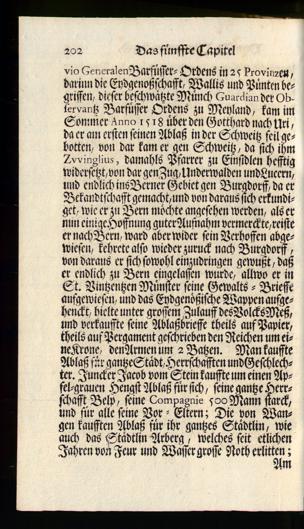 202 Das fünffte Capitel
vio Generalen Barfüsser-Ordens in 25 Provinzen,
darinn die Eydgenoßschafft, Wallis und Pünten be-
griffen, dieser beschwätzte Münch Guardian der Ob-
servantz Barfüsser Ordens zu Meyland, kam im
Sommer Anno 1518 über den Gotthard nach Uri,
da er am ersten seinen Ablaß in der Schweitz feil ge-
botten, von dar kam er gen Schweitz, da sich ihm
Zvvinglius, damahls Pfarrer zu Einsidlen hefftig
widersetzt, von dar gen Zug, Underwalden und Lucern,
und endlich ins Berner Gebiet gen Burgdorff, da er
Bekandtschafft gemacht, und von daraus sich erkundi-
get, wie er zu Bern möchte angesehen werden, als er
nun einige Hoffnung guter Aufnahm vermerckte, reiste
er nach Bern, ward aber wider sein Verhoffen abge-
wiesen, kehrete also wieder zuruck nach Burgdorff,
von daraus er sich so wohl einzudringen gewußt, daß
er endlich zu Bern eingelassen wurde, allwo er in
St. Vintzentzen Münster seine Gewalts-Brieffe
aufgewiesen, und das Eydgenößische Wappen aufge-
henckt, hielte unter grossem Zulauff des Volcks Meß,
und verkauffte seine Ablaßbrieffe theils auf Papier,
theils auf Pergament geschrieben den Reichen um ei-
ne Krone, den Armen um 2 Batzen. Man kauffte
Ablaß für gantze Städt, Herrschafften und Geschlech-
ter. Juncker Jacob vom Stein kauffte um einen Ap-
fel-grauen Hengst Ablaß für sich, seine gantze Herr-
schafft Belp, seine Compagnie 500 Mann starck,
und für alle seine Vor-Eltern; Die von Wan-
gen kaufften Ablaß für ihr gantzes Städtlin, wie
auch das Städtlin Arberg, welches seit etlichen
Jahren von Feur und Wasser grosse Noth erlitten;
Am